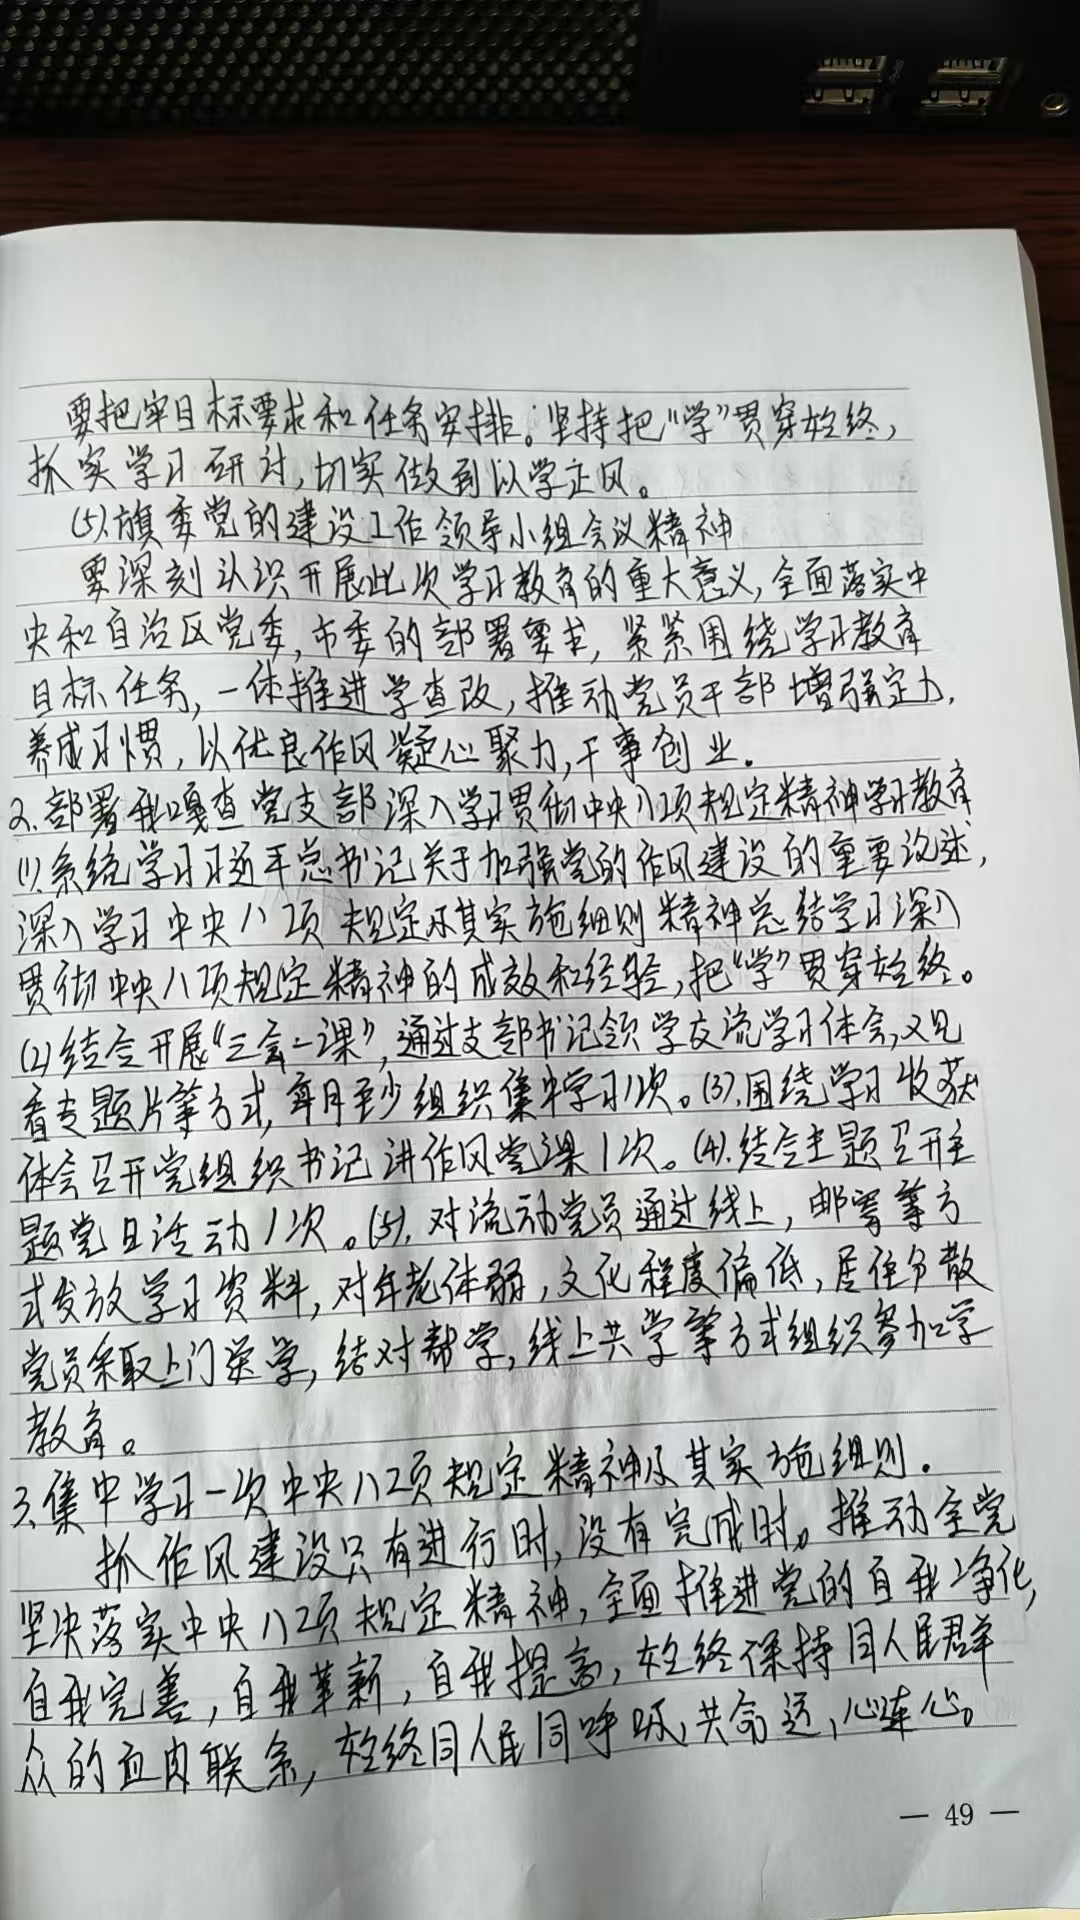 要把牢目标要求和任务安排。坚持把“学”贯穿始终，
抓实学习研讨，切实做到以学正风。
(5).旗委党的建设工作领导小组会议精神
要深刻认识开展此次学习教育的重大意义，全面落实中
央和自治区党委，市委的部署要求，紧紧围绕学习教育
目标任务，一体推进学查改，推动党员干部增强定力，
养成习惯，以优良作风凝心聚力，干事创业。
2.部署我嘎查党支部深入学习贯彻中央八项规定精神学习教育
(1).系统学习习近平总书记关于加强党的作风建设的重要论述，
深入学习中央八项规定及其实施细则精神总结学习深入
贯彻中央八项规定精神的成效和经验，把“学”贯穿始终。
(2)结合开展“三会一课”，通过支部书记领学交流学习体会，观
看专题片等方式，每月至少组织集中学习1次。(3).围绕学习收获
体会召开党组织书记讲作风党课1次。(4).结合主题召开主
题党日活动1次。(5).对流动党员通过线上，邮寄等方
式发放学习资料，对年老体弱，文化程度偏低，居住分散
党员采取上门送学，结对帮学，线上共学等方式组织参加学
教育。
3.集中学习一次中央八项规定精神及其实施细则.
抓作风建设只有进行时，没有完成时。推动全党
坚决落实中央八项规定精神，全面推进党的自我净化，
自我完善，自我革新，自我提高，始终保持同人民群
众的血肉联系，始终同人民同呼吸，共命运，心连心。
— 49 —